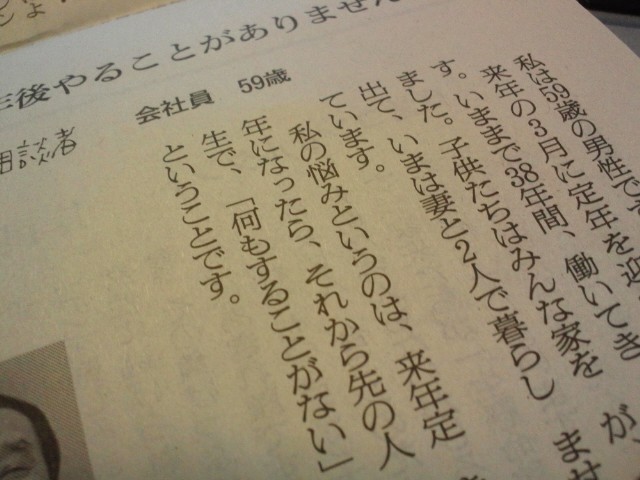 年後やることがありません
会社員　59歳
相談者
私は59歳の男性です
来年の3月に定年を迎
す。いままで38年間、働いてき
ました。子供たちはみんな家を
出て、いまは妻と2人で暮らし
ています。
私の悩みというのは、来年定
年になったら、それから先の人
生で、「何もすることがない」
ということです。
が、
ませ